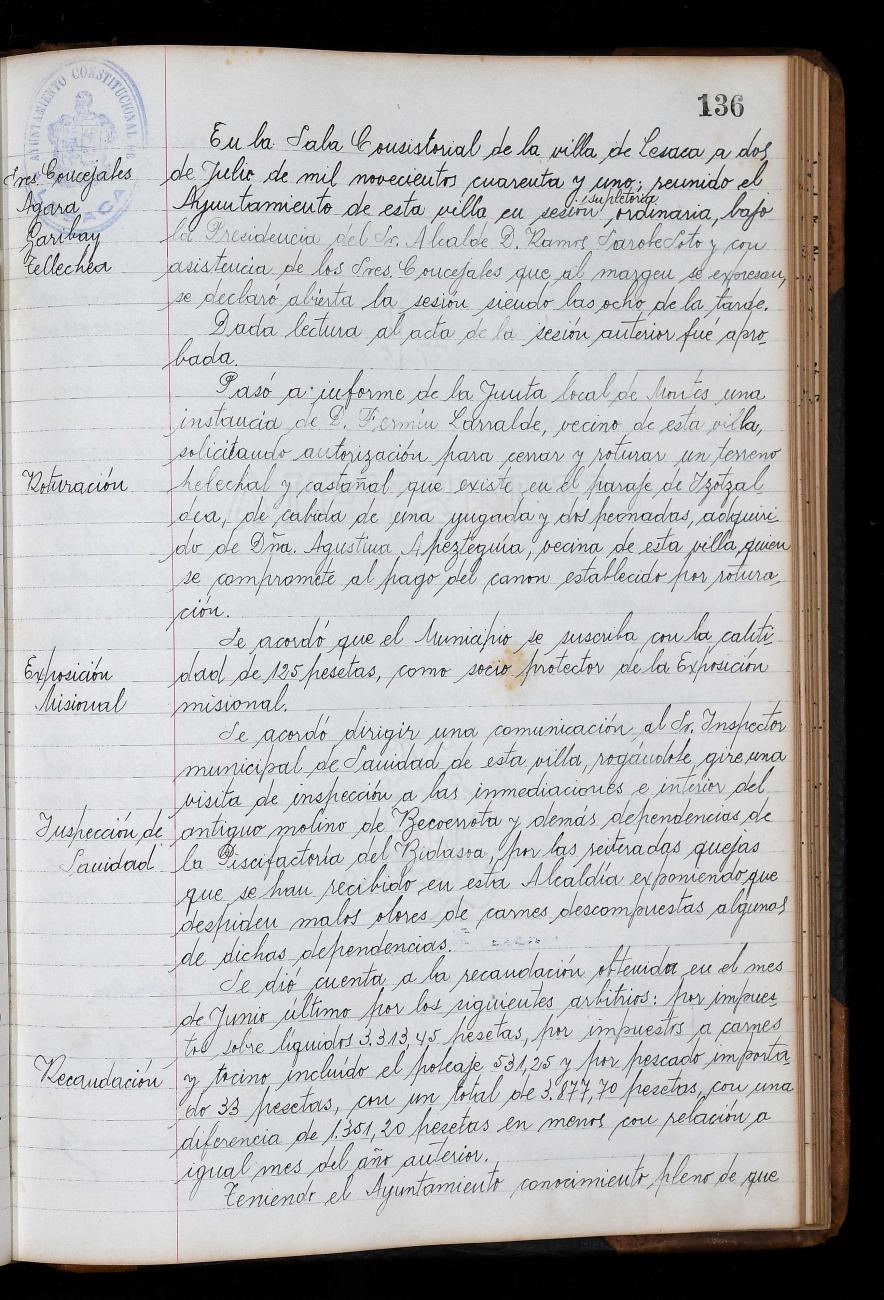 136
AYUNTAMIENTO CONSTITUCIONAL DE
LESACA
En la Sala Consistorial de la villa de Lesaca a dos
Sres. Concejales
de Julio de mil novecientos cuarenta y uno; reunido el
Agara
Ayuntamiento de esta villa en sesión supletoria ordinaria, bajo
Garibay
la Presidencia del Sr. Alcalde D. Ramos Sarobe Soto y con
Tellechea
asistencia de los Sres. Concejales que al margen se expresan,
se declaró abierta la sesión siendo las ocho de la tarde.
Dada lectura al acta de la sesión anterior fué apro-
bada.
Pasó a informe de la Junta local de Montes una
instancia de D. Fermín Larralde, vecino de esta villa,
solicitando autorización para cerrar y roturar un terreno
Roturación
helechal y castañal que existe en el paraje de Izotzal
dea, de cabida de una yugada y dos peonadas, adquiri-
do de Dña. Agustina Apezteguía, vecina de esta villa, quien
se compromete al pago del canon establecido por rotura-
ción.
Se acordó que el Municipio se suscriba con la canti-
Exposición
dad de 125 pesetas, como socio protector de la Exposición
Misional
misional.
Se acordó dirigir una comunicación al Sr. Inspector
municipal de Sanidad de esta villa, rogándole gire una
visita de inspección a las inmediaciones e interior del
Inspección de
antiguo molino de Becoerrota y demás dependencias de
Sanidad
la Piscifactoría del Bidasoa, por las reiteradas quejas
que se han recibido en esta Alcaldía exponiendo que
despiden malos olores de carnes descompuestas algunas
de dichas dependencias.
Se dió cuenta a la recaudación obtenida en el mes
de Junio último por los siguientes arbitrios: por impues-
tos sobre líquidos 3.313,45 pesetas, por impuestos a carnes
Recaudación
y tocino incluído el poteaje 531,25 y por pescado importa-
do 33 pesetas, con un total de 3.877,70 pesetas, con una
diferencia de 1.351,20 pesetas en menos con relación a
igual mes del año anterior.
Teniendo el Ayuntamiento conocimiento pleno de que